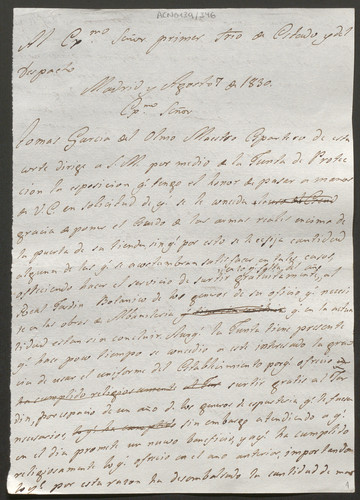 Al Exmo Señor primer Srio de Estado, y del
Despacho
Madrid y Agosto 7 de 1830.
Exmo Señor
Tomas Garcia del Olmo Maestro Espartero de esta
corte dirige a S.M. por medio de la Junta de Protec
cion la esposicion q̃ tengo el honor de pasar a manos
de V.E en solicitud de q̃ se le conceda la
gracia de poner el Escudo de las armas reales encima de
la puerta de su tienda sin q̃ por esto se le exija cantidad
alguna de las q̃ se acostumbran satisfacer en tales casos,
ofreciendo hacer el servicio de surtir gratuitamente al
Real Jardin Botanico de los generos de su oficio q̃ neces
te en las obras de Albañileria y en la actua
lidad estan sin concluir. Aunq̃ la Junta tiene presente
q̃ hace poco tiempo se concedio a este interesado la gra
cia de usar el uniforme del Establecimiento porq̃ ofrecio
surtir gratis al Jar
din, por espacio de un año de los generos de esparteria q̃ le fuesen
necesarios, sin embargo atendiendo a q̃
en el dia promete un nuevo beneficio, y a q̃ ha cumplido
religiosamente lo q̃ ofrecio en el año anterior, importando
lo q̃ por esta razon ha desembolsado la cantidad de mas